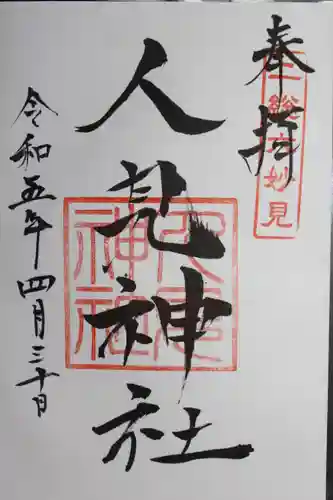 奉拝
総 妙見
人見神社
人見
神社
令和五年四月三十日